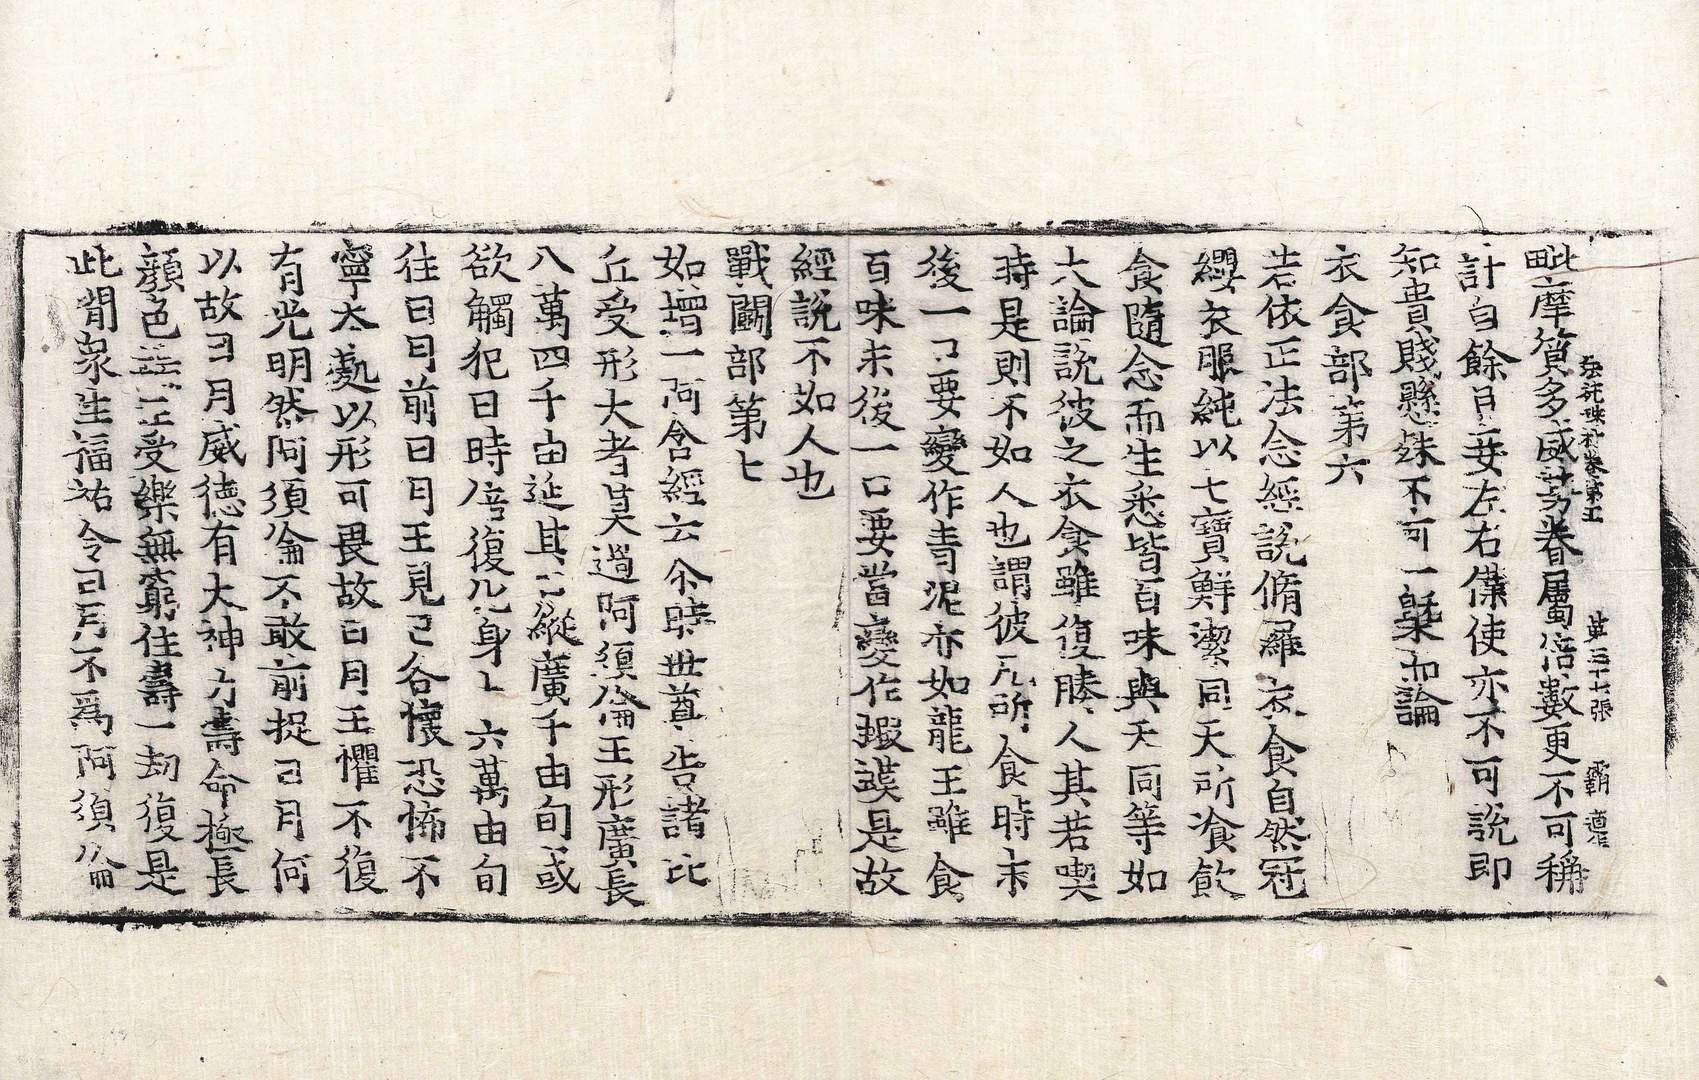 毗摩質多威勢眷屬倍數更不可稱
法苑珠林卷第五 第三十七張 霸
計自餘臣妾左右僕使亦不可說即
知貴賤懸殊不可一槩而論
衣食部第六
若依正法念經說脩羅衣食自然冠
纓衣服純以七寶鮮潔同天所飡飲
食隨念而生悉皆百味與天同等如
大論說彼之衣食雖復勝人其若喫
時是則不如人也謂彼凡所食時末
後一口要變作青泥亦如龍王雖食
百味末後一口要當變作蝦蟇是故
經說不如人也
戰鬪部第七
如增一阿含經云余時世尊告諸比
丘受形大者莫過阿須倫王形廣長
八萬四千由延其口縱廣千由旬或
欲觸犯日時倍復化身十六萬由旬
往日月前日月王見已各懷恐怖不
寧本處以形可畏故日月王懼不復
有光明然阿須倫不敢前捉日月何
以故日月威德有大神力壽命極長
顏色端正受樂無窮住壽一劫復是
此間衆生福祐令日月不爲阿須倫